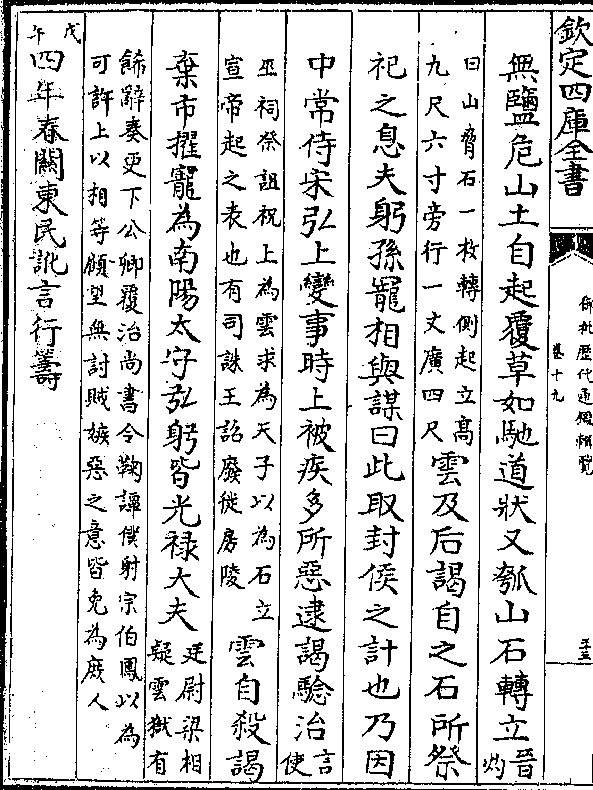 欽定四庫全書
御批歷代通鑑輯覽
卷十九
無鹽危山土自起覆草如馳道狀又瓠山石轉立晉灼
曰山脅石一枚轉側起立高
九尺六寸旁行一丈廣四尺雲及后謁自之石所祭
祀之息夫躬孫寵相與謀曰此取封侯之計也乃因
中常侍宋弘上變事時上被疾多所惡逮謁驗治言使
巫祠祭詛祝上為雲求為天子以為石立
宣帝起之表也有司誅王詔廢徙房陵雲自殺謁
棄市擢寵為南陽太守弘躬皆光祿大夫廷尉梁相
疑雲獄有
餙辭奏更下公卿覆治尚書令鞠譚僕射宗伯鳳以為
可許上以相等顧望無討賊嫉惡之意皆免為庶人
戊午
四年春關東民訛言行籌